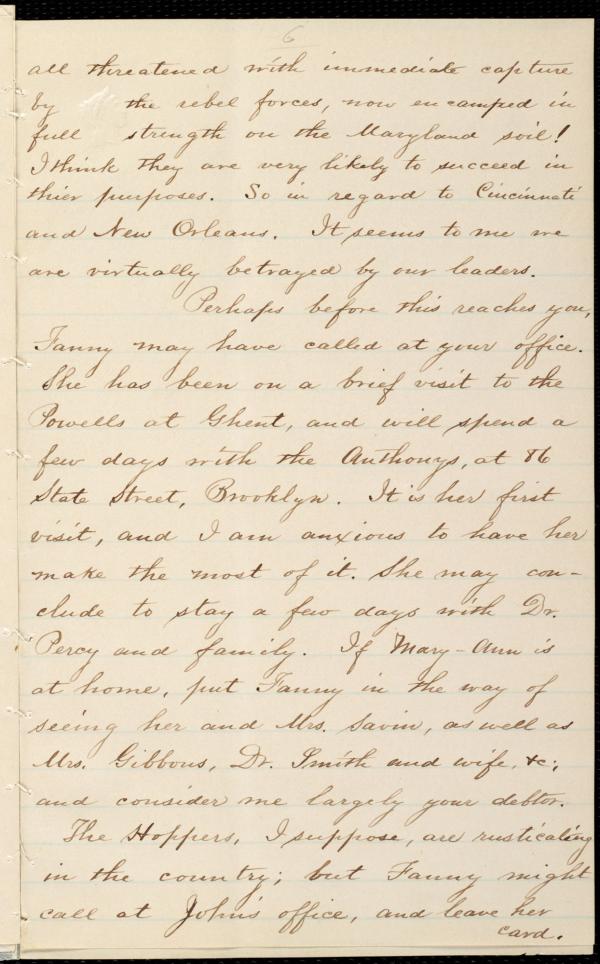 6
all threatened with immediate capture
by the rebel forces, now encamped in
full strength on the Maryland soil!
I think they are very likely to succeed in
thier purposes. So in regard to Cincinnati
and New Orleans. It seems to me we
are virtually betrayed by our leaders.
Perhaps before this reaches you,
Fanny may have called at your office.
She has been on a brief visit to the
Powells at Ghent, and will spend a
few days with the Anthonys, at 86
State Street, Brooklyn. It is her first
visit, and I am anxious to have her
make the most of it. She may con-
clude to stay a few days with Dr.
Percy and family. If Mary-Ann is
at home, put Fanny in the way of
seeing her and Mrs. Savin, as well as
Mrs. Gibbons, Dr. Smith and wife, &c;
and consider me largely your debtor.
The Hoppers, I suppose, are rusticating
in the country; but Fanny might
call at John's office, and leave her
card.